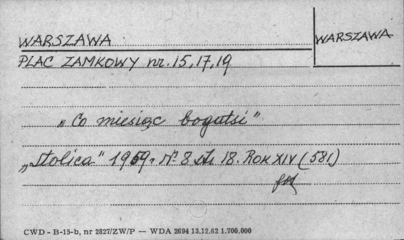 WARSZAWA
WARSZAWA
PLAC ZAMKOWY nr. 15, 17, 19
„Co miesiąc bogatsi”
„Stolica” 1959 r. Nº 8 str. 18. ROK XIV (581)
CWD - B-15-b, nr 2827/ZW/P — WDA 2694 13.12.62 1.700.000